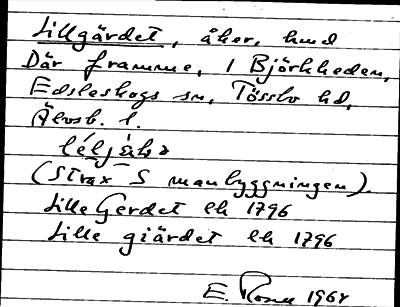 Lillgärdet, åker, hmd
Där framme, 1 Björkheden,
Edsleskogs sn, Tössbo hd,
Älvsb. l.
(strax S manbyggningen).
Lille Gerdet lh 1796
Lille giärdet lh 1796
E. 1964